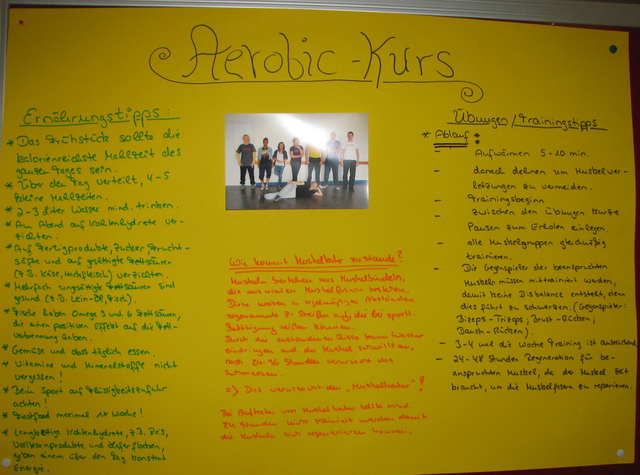 Aerobic-Kurs
Ernährungstipps:
* Das Frühstück sollte die
kalorienreichste Mahlzeit des
ganzen Tages sein.
* Über den Tag verteilt, 4-5
kleine Mahlzeiten.
* 2-3 liter Wasser mind. trinken.
* Am Abend auf Kohlenhydrate ver-
zichten.
* Auf Fertigprodukte, Zucker, Frucht-
säfte und auf gesättigte Fettsäuren
(z.B. Käse, Hackfleisch) verzichten.
* Mehrfach ungesättigte Fettsäuren sind
gesund (z.B. Lein-Öl, Fisch).
* Fische haben Omega 3 und 6 Fettsäuren,
die einen positiven Effekt auf die Fett-
verbrennung haben.
* Gemüse und obst täglich essen.
* Vitamine und Mineralstoffe nicht
vergessen!
* Beim Sport auf Flüssigkeitszufuhr
achten!
* Fastfood maximal 1x Woche!
* Langkettige Kohlenhydrate, z.B. Reis,
Vollkornprodukte und Haferflocken,
geben einem über den Tag konstant
Energie.
Wie kommt Muskelkater zustande?
Muskeln bestehen aus Muskelbündeln,
die aus vielen Muskelfasern bestehen.
Diese weisen in regelmäßigen Abständen
sogenannte Z-Streifen auf, die bei großer
Betätigung reißen können.
Durch die entstandenen Risse kann Wasser
eindringen und der Muskel schwillt an,
nach 24-36 Stunden verursacht das
Schmerzen.
=> Dies verursacht den "Muskelkater"!
Bei Auftreten von Muskelkater sollte mind.
24 Stunden nicht trainiert werden damit
der Muskel sich regenerieren kann.
Übungen/Trainingstipps
* Ablauf:
- Aufwärmen 5-10 min.
- danach dehnen um Muskelver-
letzungen zu vermeiden.
- Trainingsbeginn
- zwischen den Übungen kurze
Pausen zum Erholen einlegen.
- alle Muskelgruppen gleichmäßig
trainieren.
- Die Gegenspieler der beanspruchten
Muskeln müssen mittrainiert werden,
damit keine Disbalance entsteht, denn
dies führt zu schmerzen. (Gegenspieler:
Bizeps-Trizeps; Brust-Rücken;
Bauch-Rücken)
- 3-4 mal die Woche Training ist ausreichend
- 24-48 Stunden Regeneration für be-
anspruchten Muskel, da der Muskel Zeit
braucht, um die Muskelfasern zu reparieren.